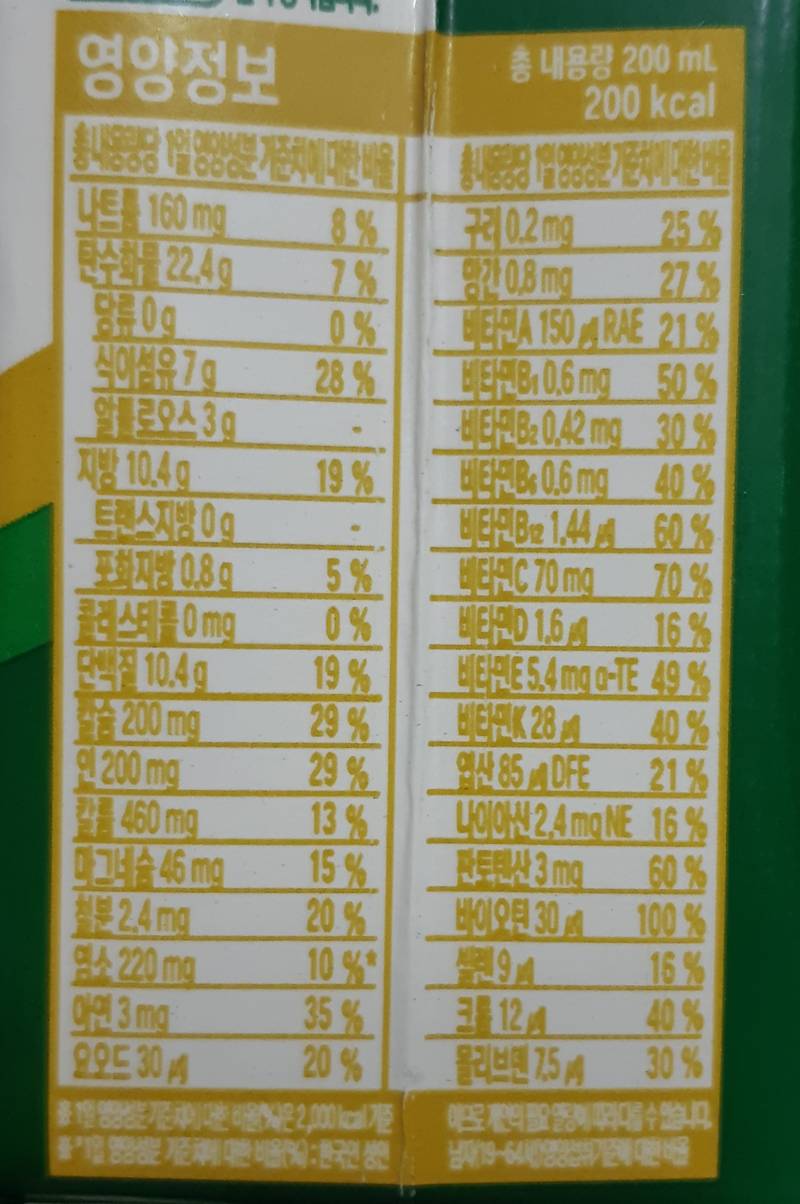 영양정보
총 내용량 200 mL
200 kcal
총 내용량당 1일 영양성분 기준치에 대한 비율
나트륨 160 mg 8 %
탄수화물 22.4 g 7 %
당류 0 g 0 %
식이섬유 7 g 28 %
알룰로오스 3 g -
지방 10.4 g 19 %
트랜스지방 0 g -
포화지방 0.8 g 5 %
콜레스테롤 0 mg 0 %
단백질 10.4 g 19 %
칼슘 200 mg 29 %
인 200 mg 29 %
칼륨 460 mg 13 %
마그네슘 46 mg 15 %
철분 2.4 mg 20 %
염소 220 mg 10 %*
아연 3 mg 35 %
요오드 30 ㎍ 20 %
총 내용량당 1일 영양성분 기준치에 대한 비율
구리 0.2 mg 25 %
망간 0.8 mg 27 %
비타민A 150 ㎍ RAE 21 %
비타민B₁ 0.6 mg 50 %
비타민B₂ 0.42 mg 30 %
비타민B₆ 0.6 mg 40 %
비타민B₁₂ 1.44 ㎍ 60 %
비타민C 70 mg 70 %
비타민D 1.6 ㎍ 16 %
비타민E 5.4 mg α-TE 49 %
비타민K 28 ㎍ 40 %
엽산 85 ㎍ DFE 21 %
나이아신 2.4 mg NE 16 %
판토텐산 3 mg 60 %
바이오틴 30 ㎍ 100 %
셀렌 9 ㎍ 16 %
크롬 12 ㎍ 40 %
몰리브덴 7.5 ㎍ 30 %
1일 영양성분 기준치에 대한 비율(%)은 2,000 kcal 기준
이므로 개인의 필요 열량에 따라 다를 수 있습니다.
1일 영양성분 기준치에 대한 비율(%) : 한국인 성인
남자(19~64세) 영양섭취기준에 대한 비율